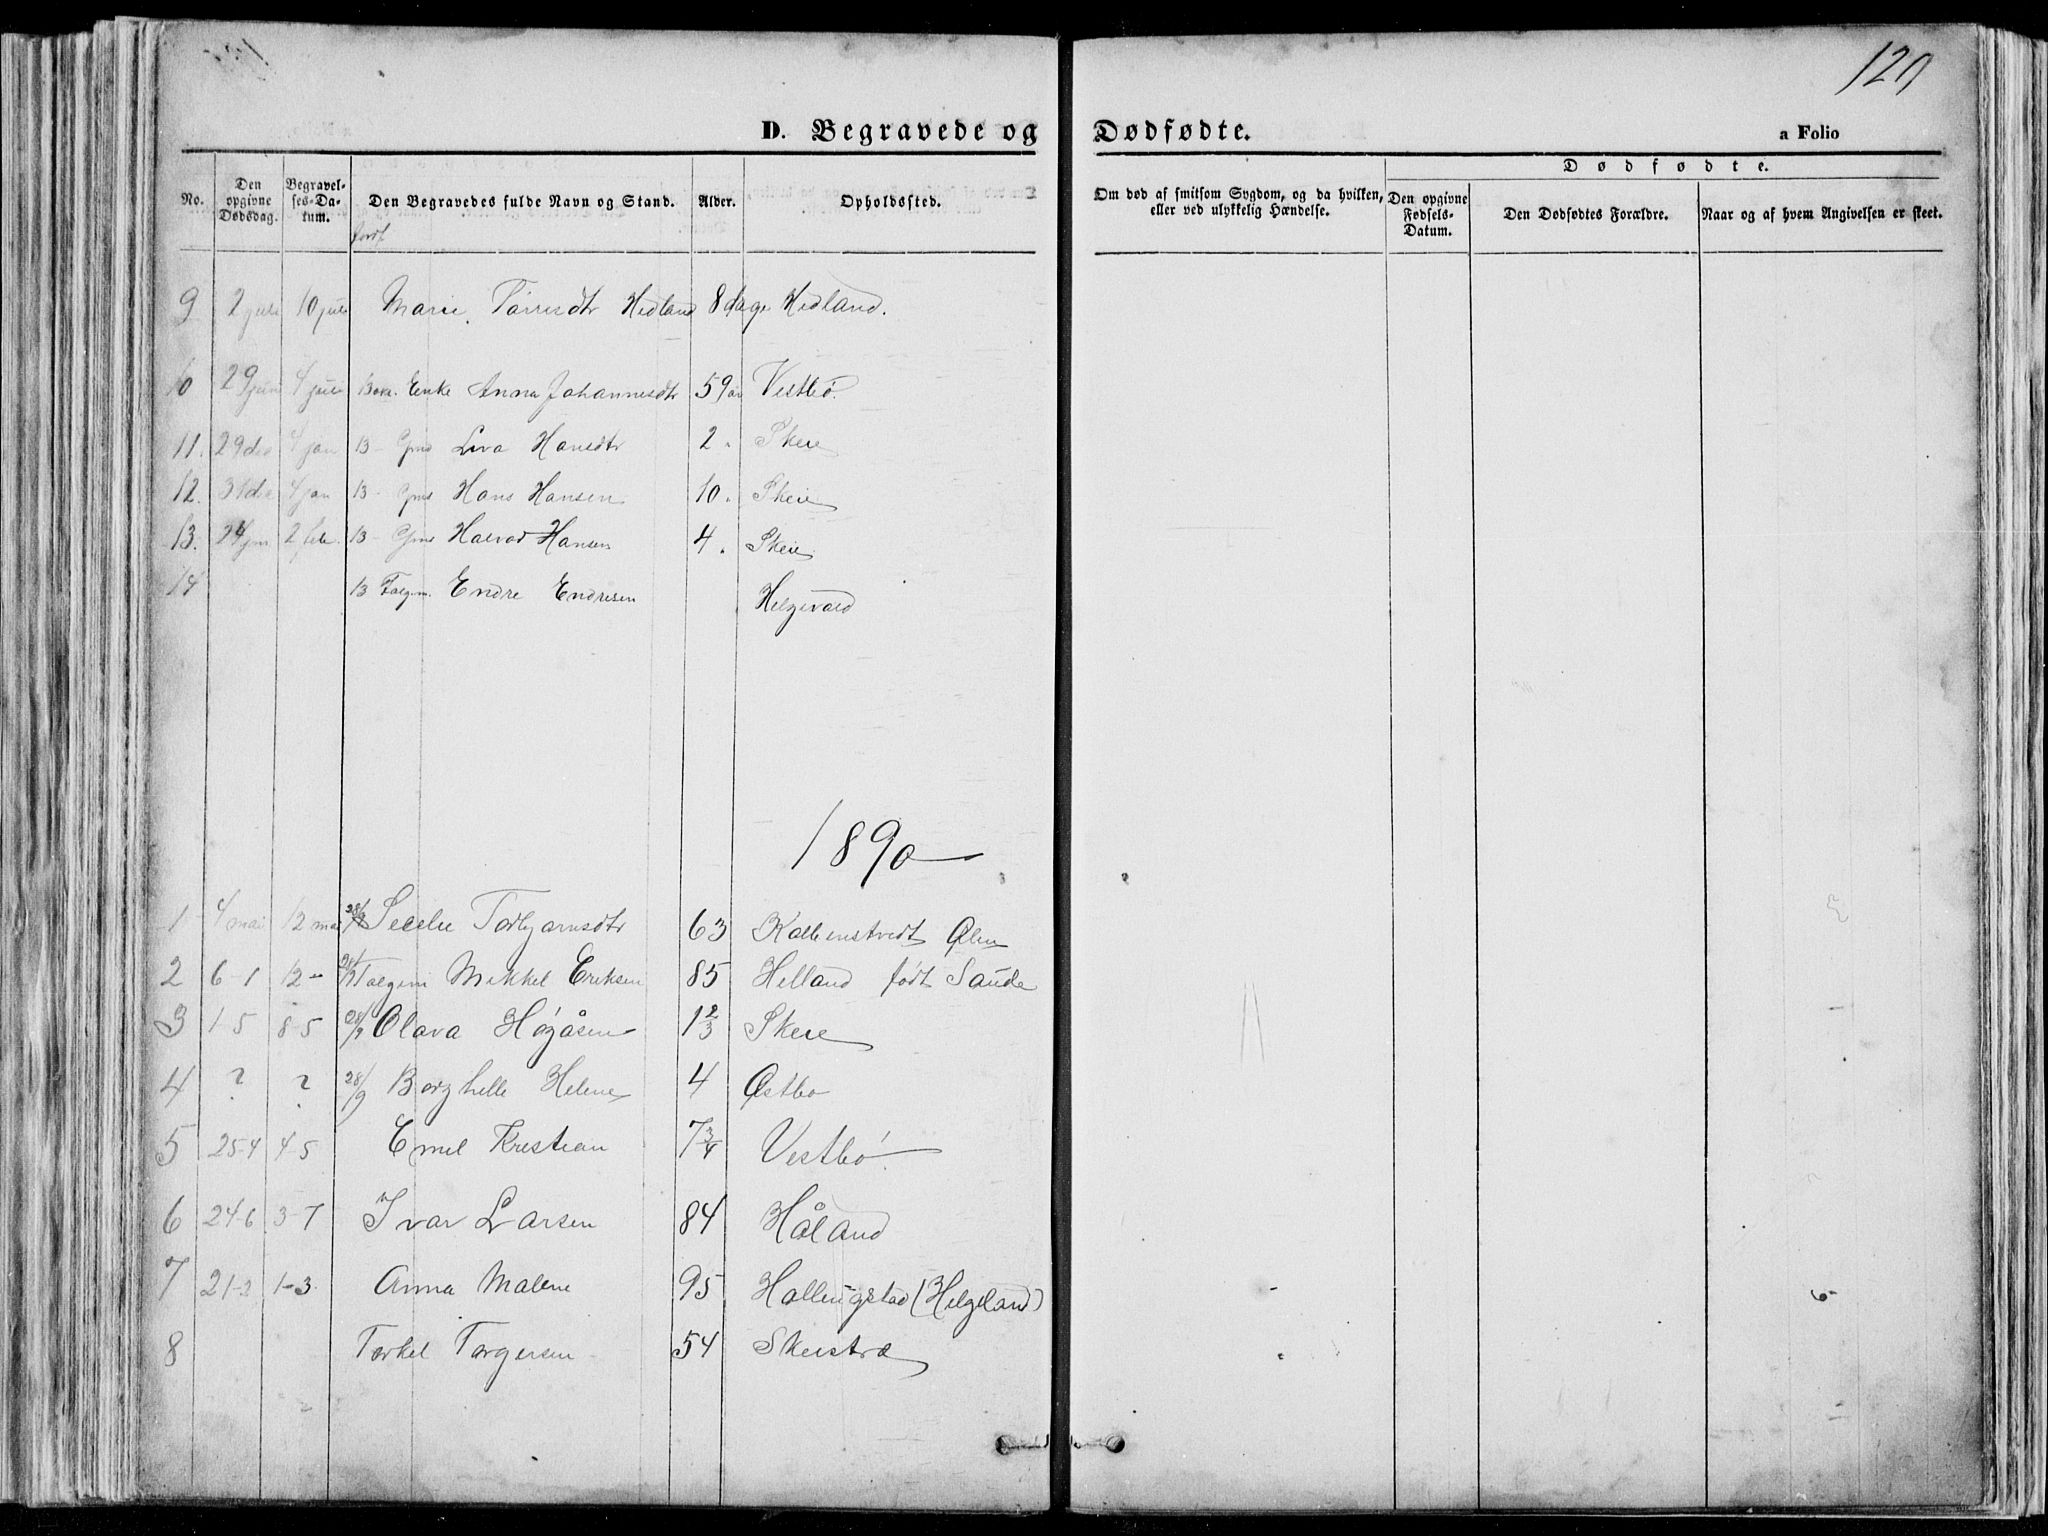 120
D. Begravede og Dødfødte. a Folio
No. Den opgivne Dødsdag. Begravelses-Datum. Den Begravedes fulde Navn og Stand. Alder. Opholdssted. Om død af smitsom Sygdom, og da hvilken, eller ved ulykkelig Hændelse. Dødfødte. Den opgivne Fødsels-Datum. Den Dødfødtes Forældre. Naar og af hvem Angivelsen er skeet.
9 2 juli 10 juli Marie Hedland 8 dage Hedland.
10 29 juni 4 juli Enke Anna Johannesdtr 59 år Vestbø.
11. 29 de 4 jan 13 - Hansdtr 2. Skeie
12. 31 de 4 jan 13 - Hans Hansen 10. Skeie
13. 24 jan 2 feb. 13 - Hansen 4. Skeie
14 13 Endre Endresen
1890
1 4 mai 12 mai 28/9 63 Ølen
2 6-1 12- Mikkel Eriksen 85 Helland født Saude
3 1-5 8-5 28/9 Olava Høgåsen 1 2/3 Skeie
4 ? ? 28/9 Borghelle Helene 4 Østbø
5 25-4 4-5 Emil Kristian 7 3/4 Vestbø.
6 24-6 3-7 Ivar Larsen 84 Håland
7 21-2 1-3 Anna Malene 95 Hallingstad (Helgeland)
8 Torkel Torgersen 54